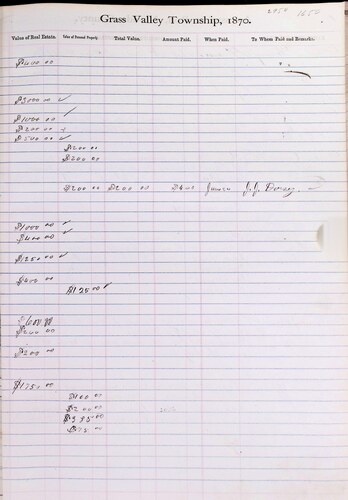 2050 1650
Grass Valley Township, 1870.
Value of Real Estate. Value of Personal Property. Total Value. Amount Paid. When Paid. To Whom Paid and Remarks.
$400 00
$3000 00
$1000 00
$200 00
$500 00
$200 00
$200 00
$200 00 $200 00 J. J. Dorsey
$1000 00
$400 00
$1250 00
$400 00
$125 00
$600 00
$200 00
$200 00
$1350 00
$100 00
$200 00
$395 00
$75 00